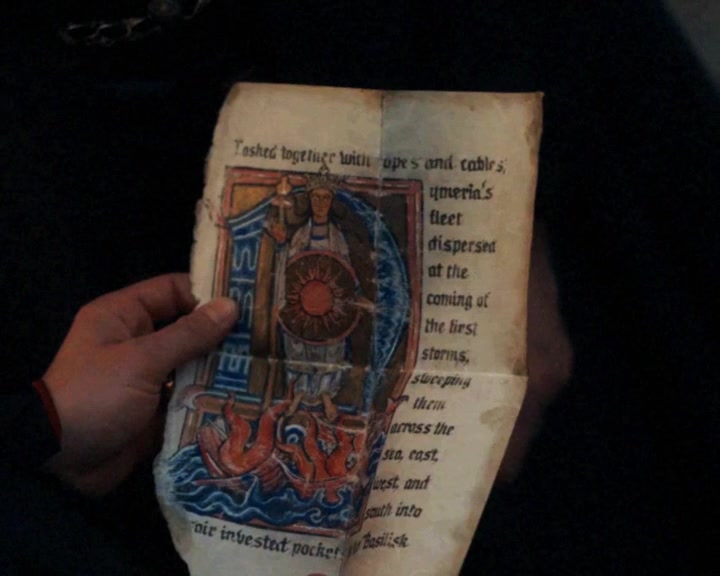 Lashed together with ropes and cables,
ymeria's
fleet
dispersed
at the
coming of
the first
storms,
sweeping
them
across the
sea, east,
west, and
south into
invested pocket
Basilisk